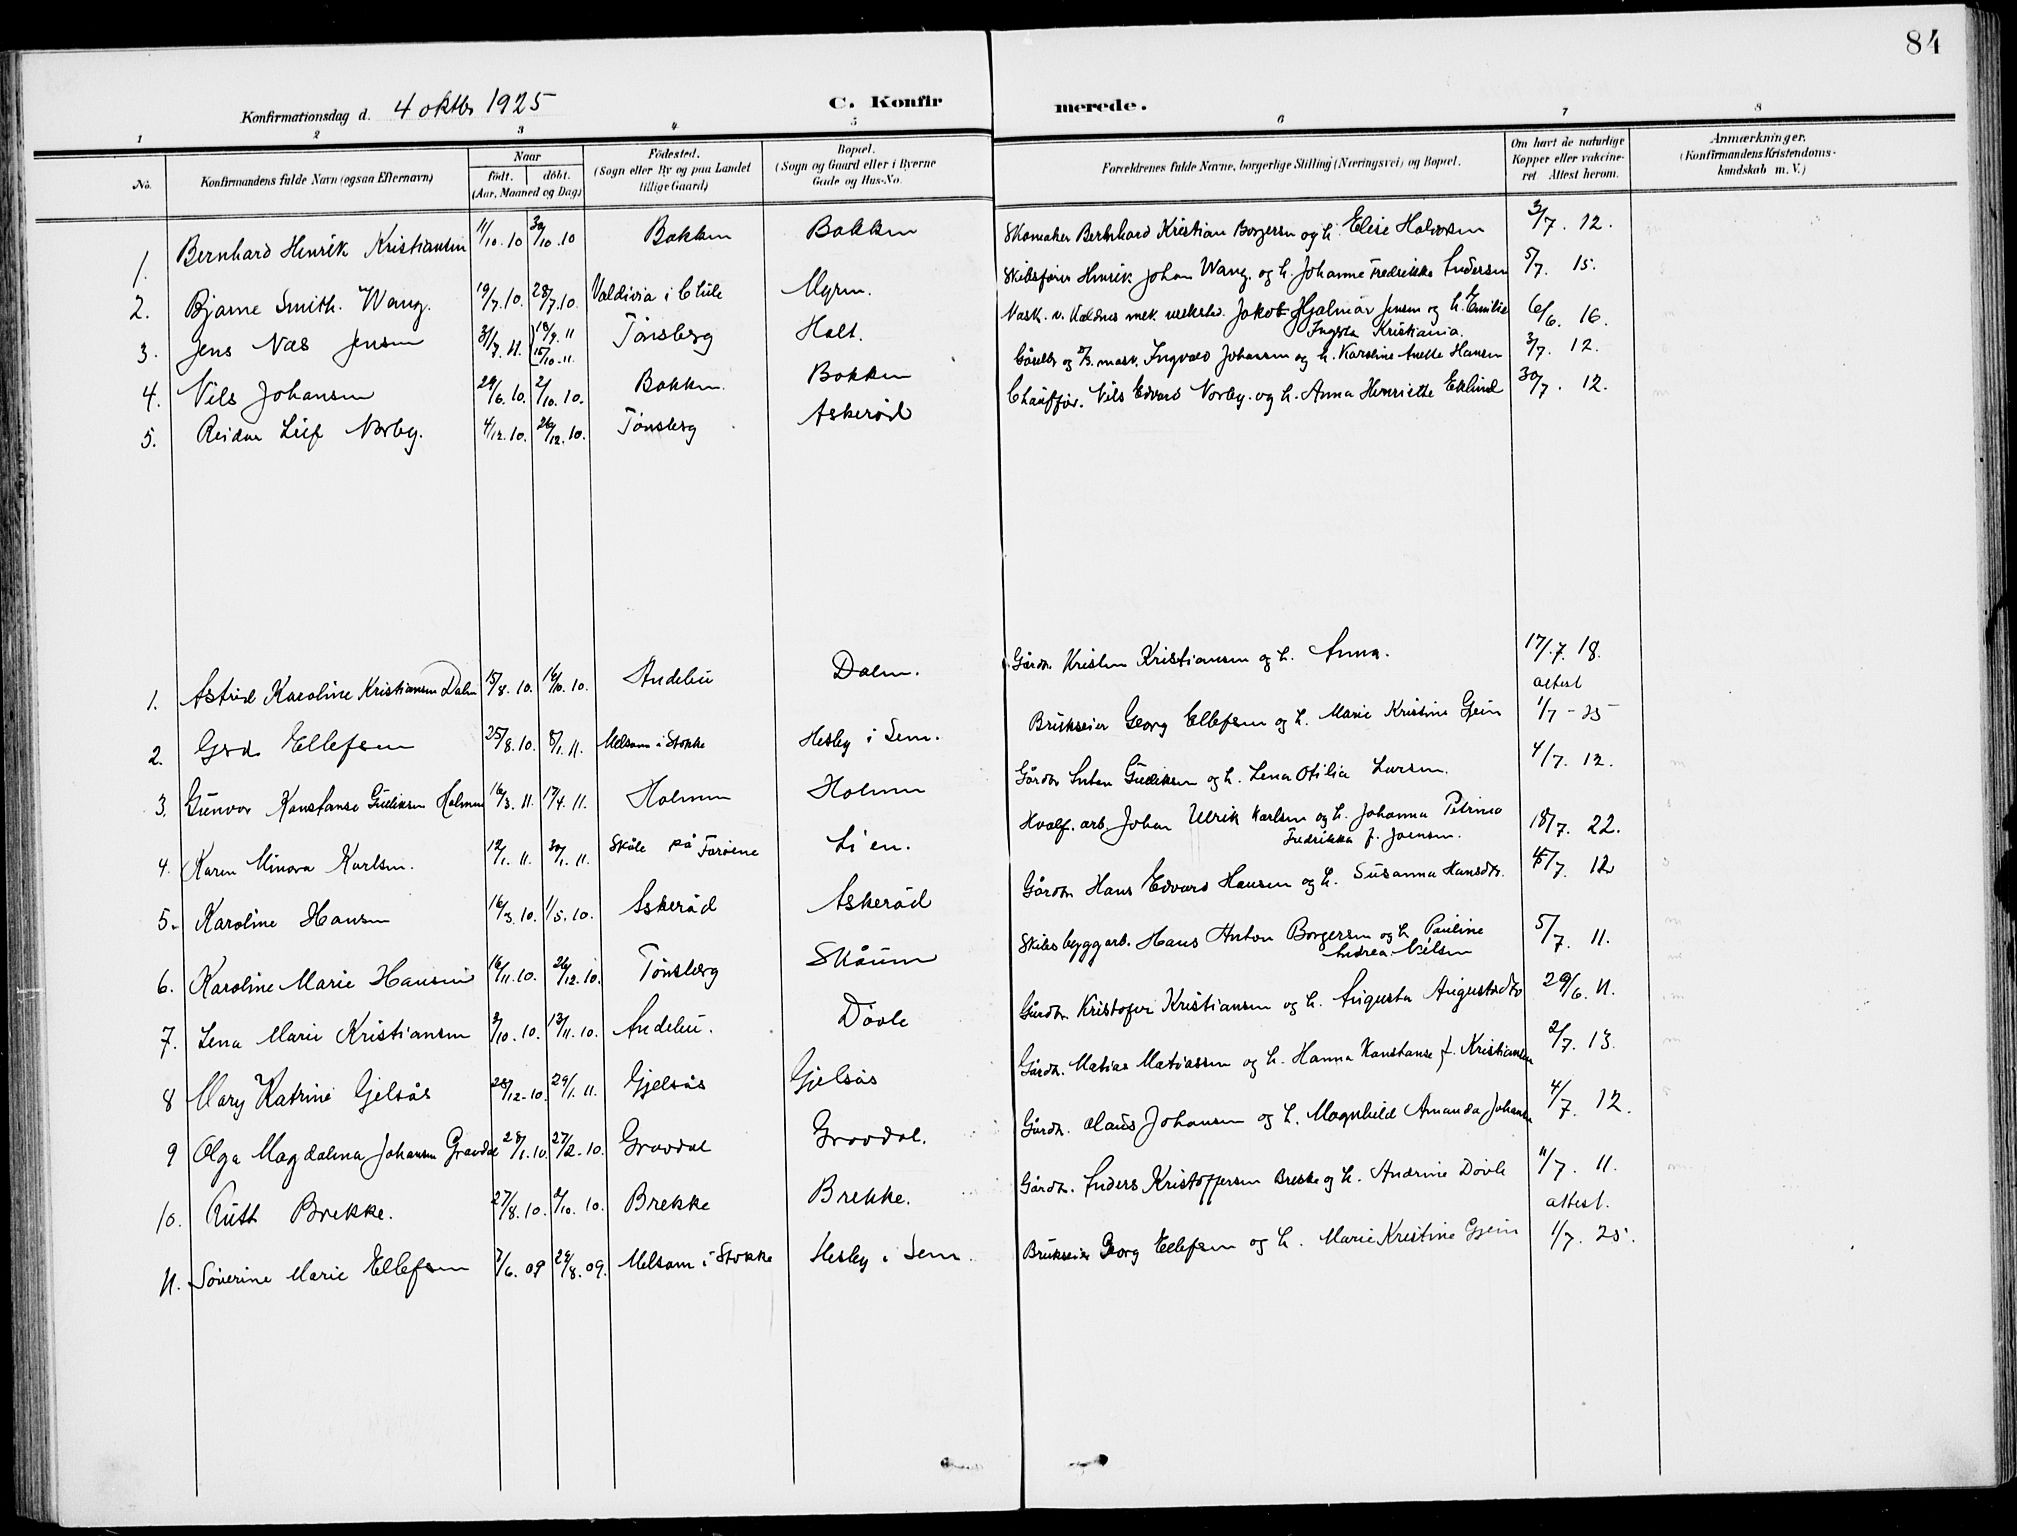 84
Konfirmationsdag d. 4 oktbr 1925
C. Konfirmerede.
1 2 3 4 5 6 7 8
No. Konfirmandens fulde Navn (ogsaa Efternavn) Naar født. døbt. (Aar, Maaned og Dag) Fødested. (Sogn eller By og paa Landet tillige Gaard) Bopæl. (Sogn og Gaard eller i Byerne Gade og Hus-No. Forældrenes fulde Navne, borgerlige Stilling (Næringsvei) og Bopæl. Om havt de naturlige Kopper eller vakcineret Attest herom. Anmærkninger. (Konfirmandens Kristendomskundskab m. V.)
1. Bernhard Henrik Kristiansen 11/10. 10 30/10. 10 Bakken Bakken Skomaker Bernhard Kristian Borgersen og h. Elise Halvorsen 3/7. 12.
2. Bjarne Smith Wang. 19/7. 10. 28/7. 10. Valdivia i Chile Myren. Skibsfører Henrik Johan Wang. og h. Johanne Fredrikke Andersen 5/7. 15.
3. Jens Næs Jensen 31/7. 11. 18/9. 11 15/10. 11. Tønsberg Holt. Mask. v. Kaldnes mek. verksted. Jakob Hjalmar Jensen og h. Emilie Ingerta Kristiania. 6/6. 16.
4. Nils Johansen 29/6. 10. 2/10. 10. Bakken. Bakken og mask. Ingvald Johansen og h. Karoline Anette Hansen 3/7. 12.
5. Reidar Leif Norby. 4/12. 10. 26/12. 10. Tønsberg Askerød Chauffør. Nils Edvard Norby. og h. Anna Henriette Eklund 30/7. 12.
1. Astrid Karoline Kristiansen Dalen 15/8. 10. 16/10. 10. Andebu Dalen. Gårdbr. Kristen Kristiansen og h. Anna. 17/7. 18.
2. Gerd Ellefsen 25/8. 10. 8/1. 11. Melsom i Stokke Hesby i Sem. Brukseier Georg Ellefsen og h. Marie Kristine Gjein attest 1/7 - 25
3. Gunvor Konstanse Gulliksen Holmen 16/3. 11. 17/4. 11. Holmen Holmen Gårdbr Anton Gulliksen og h. Lena Otilia Larsen. 4/7. 12.
4. Karen Minora Karlsen. 12/1. 11. 30/1. 11. Skåle på Færøene Lien. Hvalf. arb. Johan Ulrik Karlsen og h. Johanna Petrina Fredrikka f. Joensen. 18/7. 22.
5. Karoline Hansen 16/3. 10. 1/5. 10. Askerød Askerød Gårdbr. Hans Edvard Hansen og h. Susanna Hansdtr. 15/7. 12
6. Karoline Marie Hansen 16/11. 10. 26/12. 10. Tønsberg Skåum Skibsbyggarb. Hans Anton Borgersen og h. Pauline Andrea Nielsen 5/7. 11.
7. Lena Marie Kristiansen 3/10. 10. 13/11. 10. Andebu. Døvle Gårdbr. Kristofer Kristiansen og h. Augusta Augustsdtr 29/6. 11.
8 Mary Katrine Gjelsås 28/12. 10. 29/1. 11. Gjelsås Gjelsås Gårdbr. Matias Matiassen og h. Hanna Konstanse f. Kristiansen 2/7. 13.
9 Olga Magdalena Johansen Gravdal 28/1. 10. 27/2. 10. Gravdal Gravdal. Gårdbr. Olaus Johansen og h. Magnhild Amanda Johansen 4/7. 12.
10. Ruth Brekke. 27/8. 10. 2/10. 10. Brekke Brekke. Gårdbr. Anders Kristoffersen Brekke og h. Andrine Døvle 11/7. 11.
11. Søverine Marie Ellefsen 7/6. 09 29/8. 09. Melsom i Stokke Hesby i Sem Brukseier Georg Ellefsen og h. Marie Kristine Gjein attest. 1/7. 25.